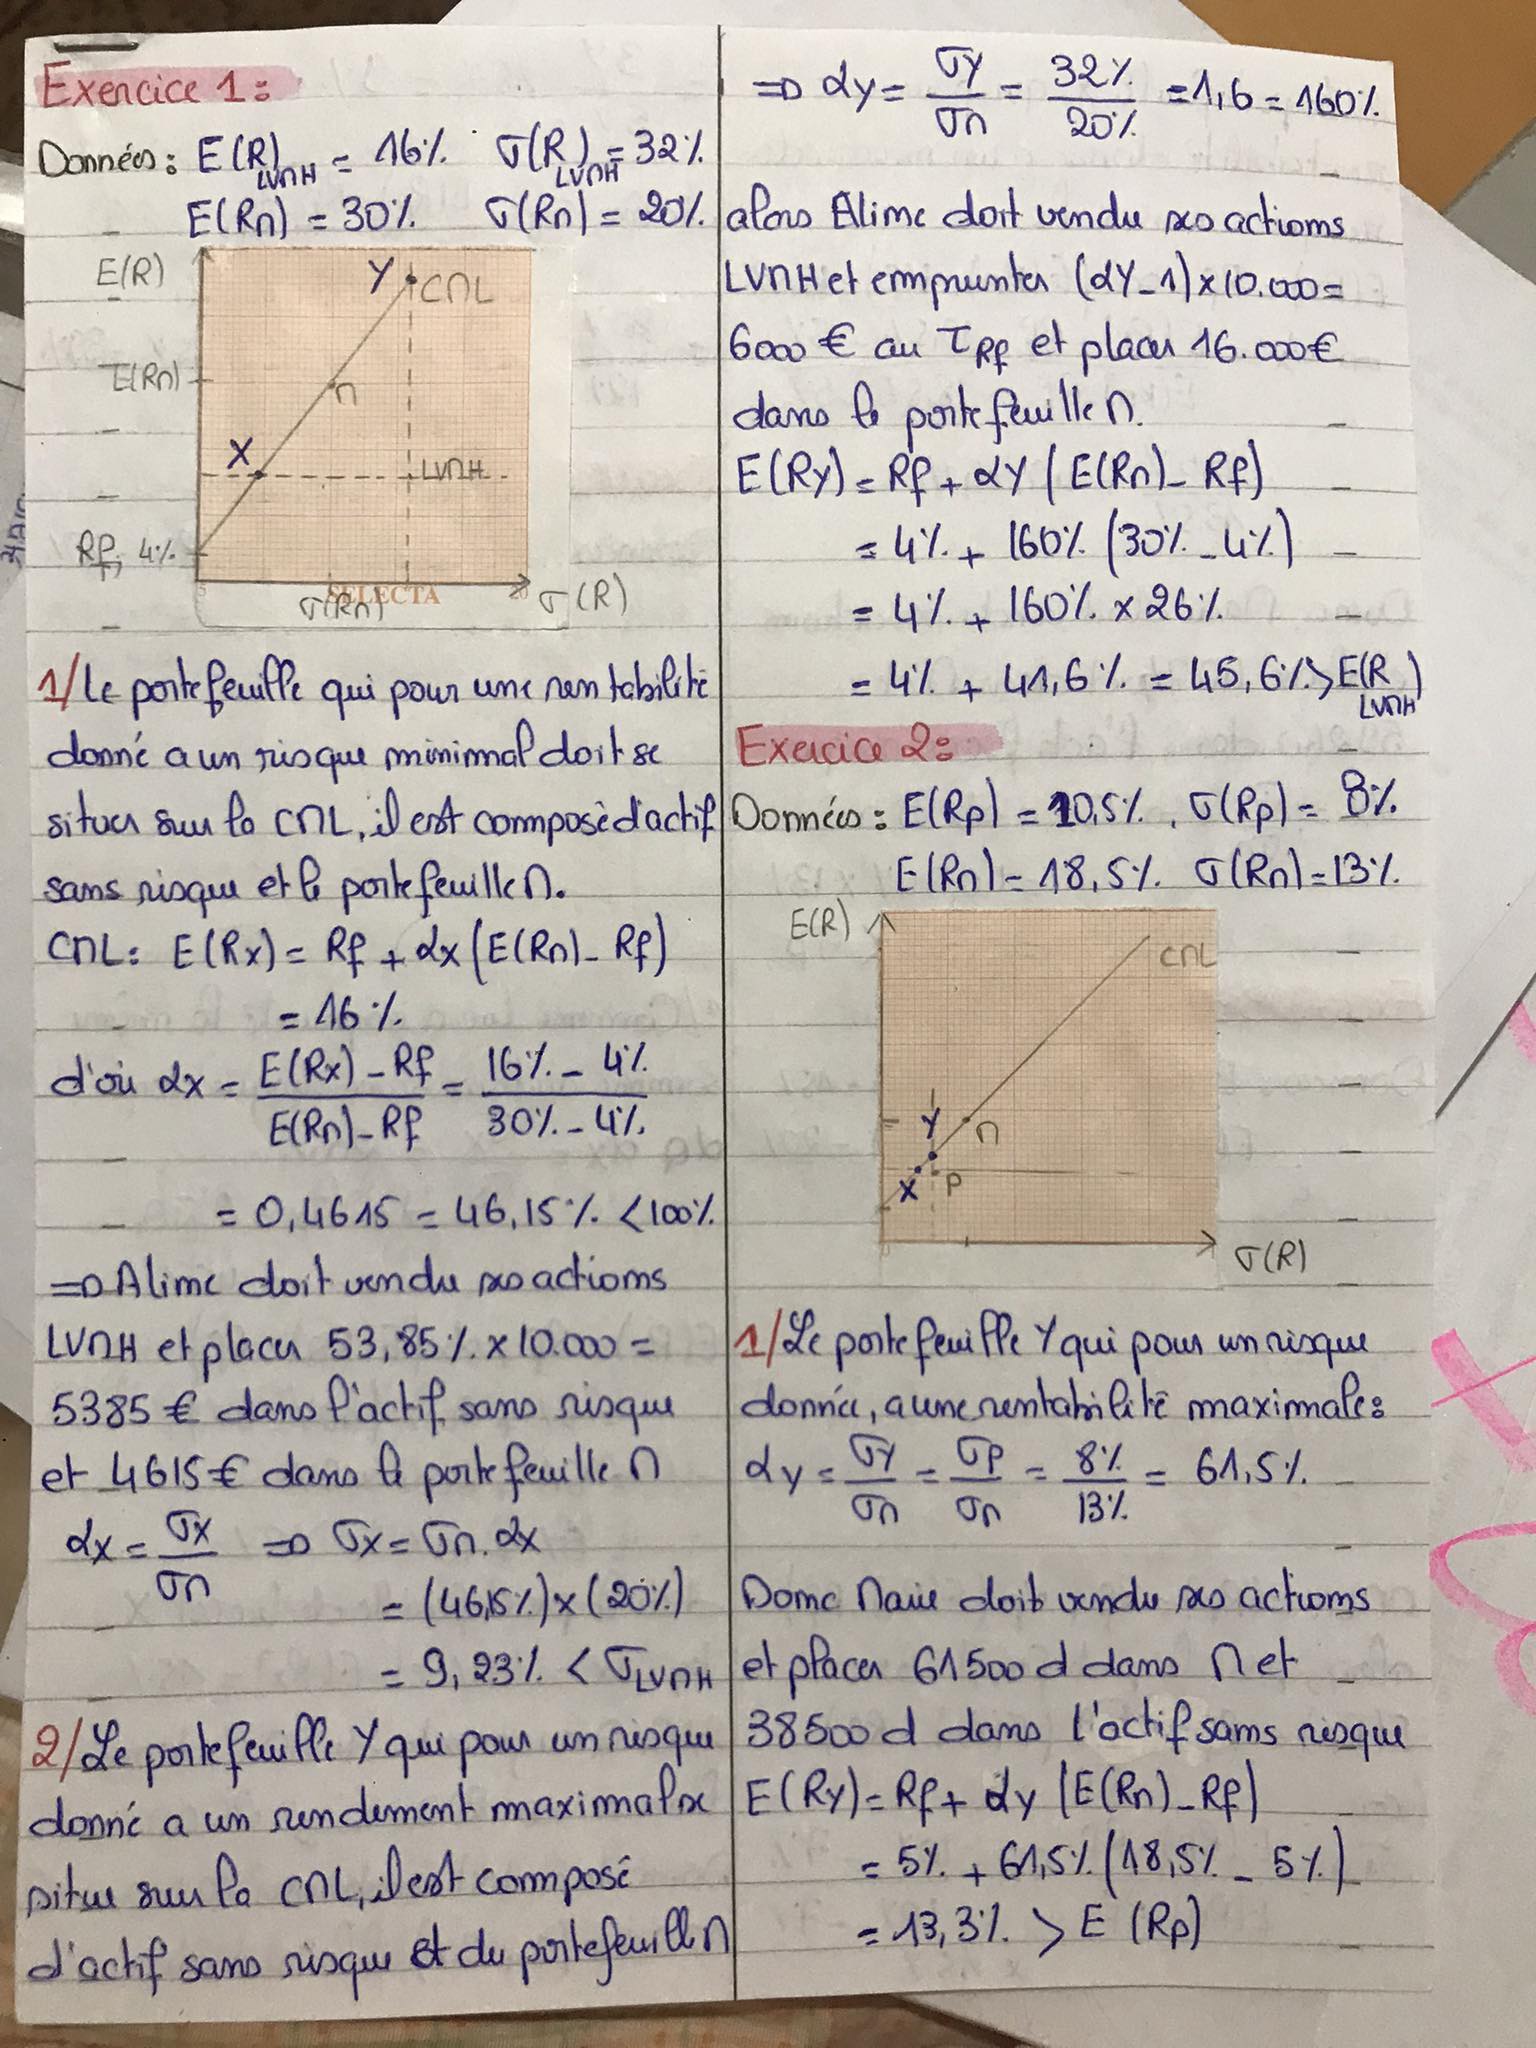 Exercice 1:
Données: E(R)LVMH = 16% σ(R)LVMH = 32%
E(RM) = 30% σ(RM) = 20%
E(R)
Y
CML
E(RM)
M
X
LVMH
Rf, 4%
5
SELECTA
20
σ(RM)
σ(R)
1/ Le portefeuille qui pour une rentabilité
donné a un risque minimal doit se
situer sur la CML, il est composé d'actif
sans risque et le portefeuille M.
CML: E(Rx) = Rf + αx (E(RM) - Rf)
= 16%
d'où αx = E(Rx) - Rf / E(RM) - Rf = 16% - 4% / 30% - 4%
= 0,4615 = 46,15% < 100%
⇒ Aline doit vendre ses actions
LVMH et placer 53,85% x 10.000 =
5385 € dans l'actif sans risque
et 4615 € dans le portefeuille M
αx = σx / σM ⇒ σx = σM . αx
= (46,15%) x (20%)
= 9,23% < σLVMH
2/ Le portefeuille Y qui pour un risque
donné a un rendement maximal se
situe sur la CML, il est composé
d'actif sans risque et du portefeuille M
⇒ αY = σY / σM = 32% / 20% = 1,6 = 160%
alors Aline doit vendre ses actions
LVMH et emprunter (αY - 1) x 10.000 =
6000 € au TRf et placer 16.000 €
dans le portefeuille M.
E(RY) = Rf + αY (E(RM) - Rf)
= 4% + 160% (30% - 4%)
= 4% + 160% x 26%
= 4% + 41,6% = 45,6% > E(R LVMH)
Exercice 2:
Données: E(Rp) = 10,5%, σ(Rp) = 8%
E(RM) = 18,5% σ(RM) = 13%
E(R)
CML
Y
M
X
P
σ(R)
1/ Le portefeuille Y qui pour un risque
donnée, a une rentabilité maximale:
αy = σY / σM = σP / σM = 8% / 13% = 61,5%
Donc Marie doit vendre ses actions
et placer 61500 d dans M et
38500 d dans l'actif sans risque
E(RY) = Rf + αy (E(RM) - Rf)
= 5% + 61,5% (18,5% - 5%)
= 13,3% > E(Rp)